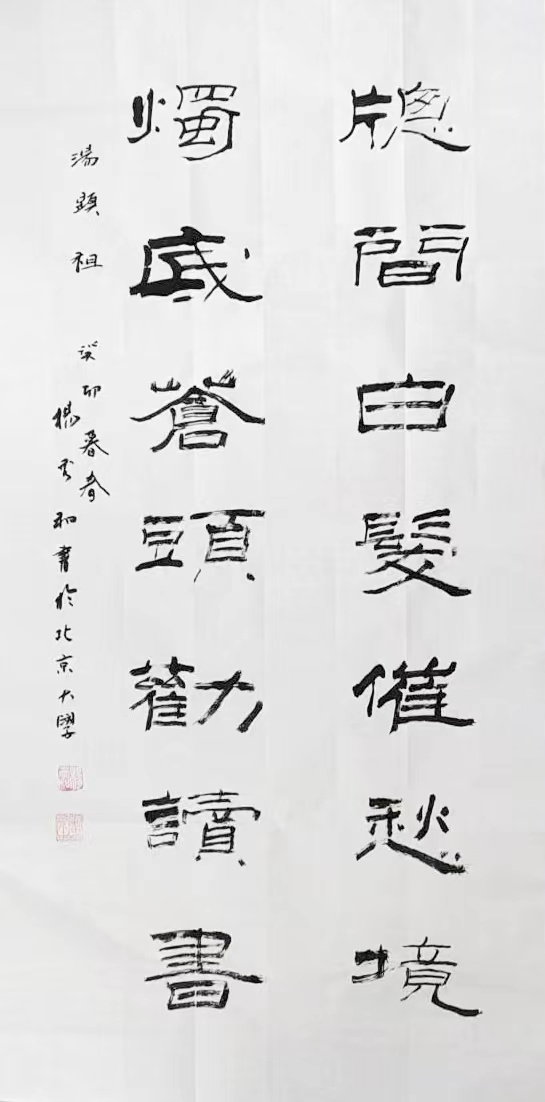 牕間白髮催愁境
燭底蒼頭勸讀書
湯顯祖
癸卯暮春
楊 和書於北京大學